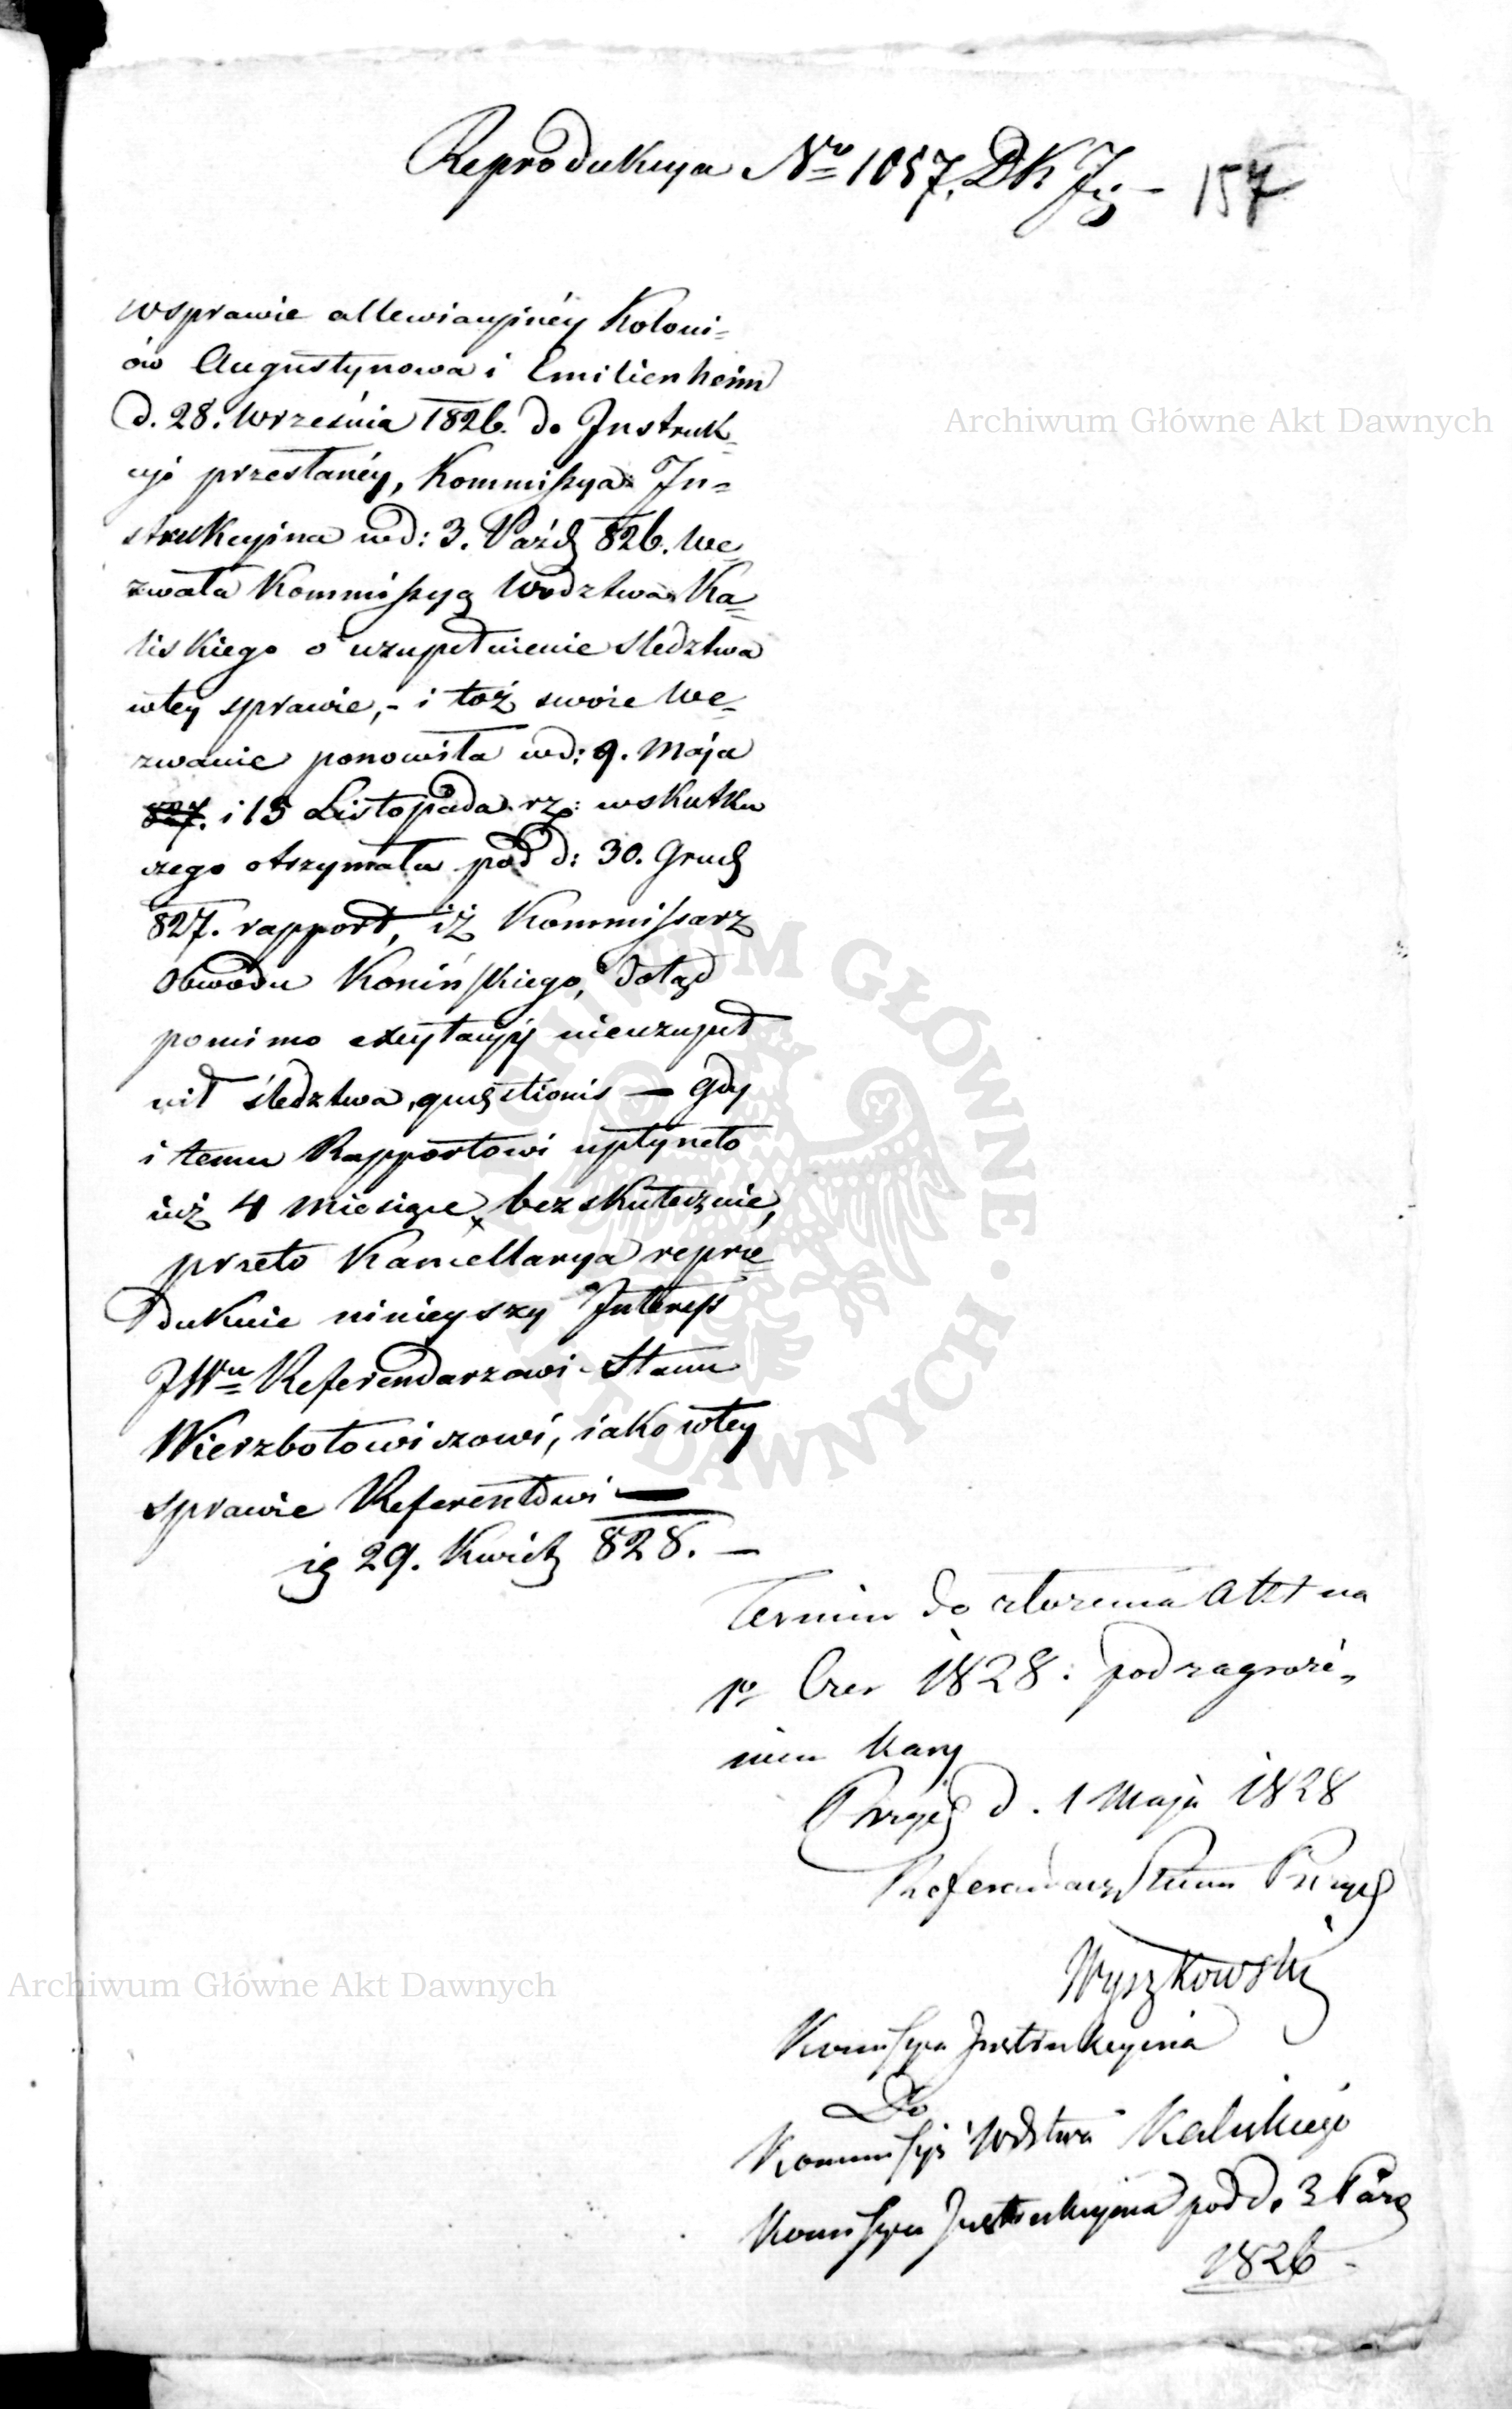 Reprodukcya Nro 1057. DK Jg — 157
w sprawie allewiacyinéy Koloni=
ów Augustynowa i Emilienheim
d. 28. Września 1826. do Instruk=
cyi przesłanéy, Kommissya In=
strukcyina wd: 3. Paźdz 826. we=
zwała Kommissyą Wodztwa Ka=
liskiego o uzupełnienie sledztwa
wtey sprawie, - i toż swoie we=
zwanie ponowiła wd: 9. Maja
827. i 15 Listopada rz: wskutku
czego otrzymała pod d: 30. Grud
827. rapport, iż Kommissarz
Obwodu Konińskiego, dotąd
pomimo excytacyj nieuzupeł
nił śledztwa, questionis — gdy
i temu Rapportowi upłyneło
iuż 4 miesiące bezskutecznie,
przeto Kancellarya repro=
dukuie ninieyszy Interess
JWu Referendarzowi Stanu
Wierzbołowiczowi, iako wtey
sprawie Referentowi —
29. Kwiet 828. —
Termin do złożenia Akt na
1o Czer 1828. pod zagroże=
niem Kary
d. 1 Maja 1828
Referendarz Stanu Przyd
Wyszkowski
Kommissya Instrukcyina
Do
Kommissyi Wdztwa Kaliskiego
Kommissya Instrukcyina pod d. 3 Paźd
1826 -
Archiwum Główne Akt Dawnych
Archiwum Główne Akt Dawnych
ARCHIWUM GŁÓWNE · AKT DAWNYCH ·